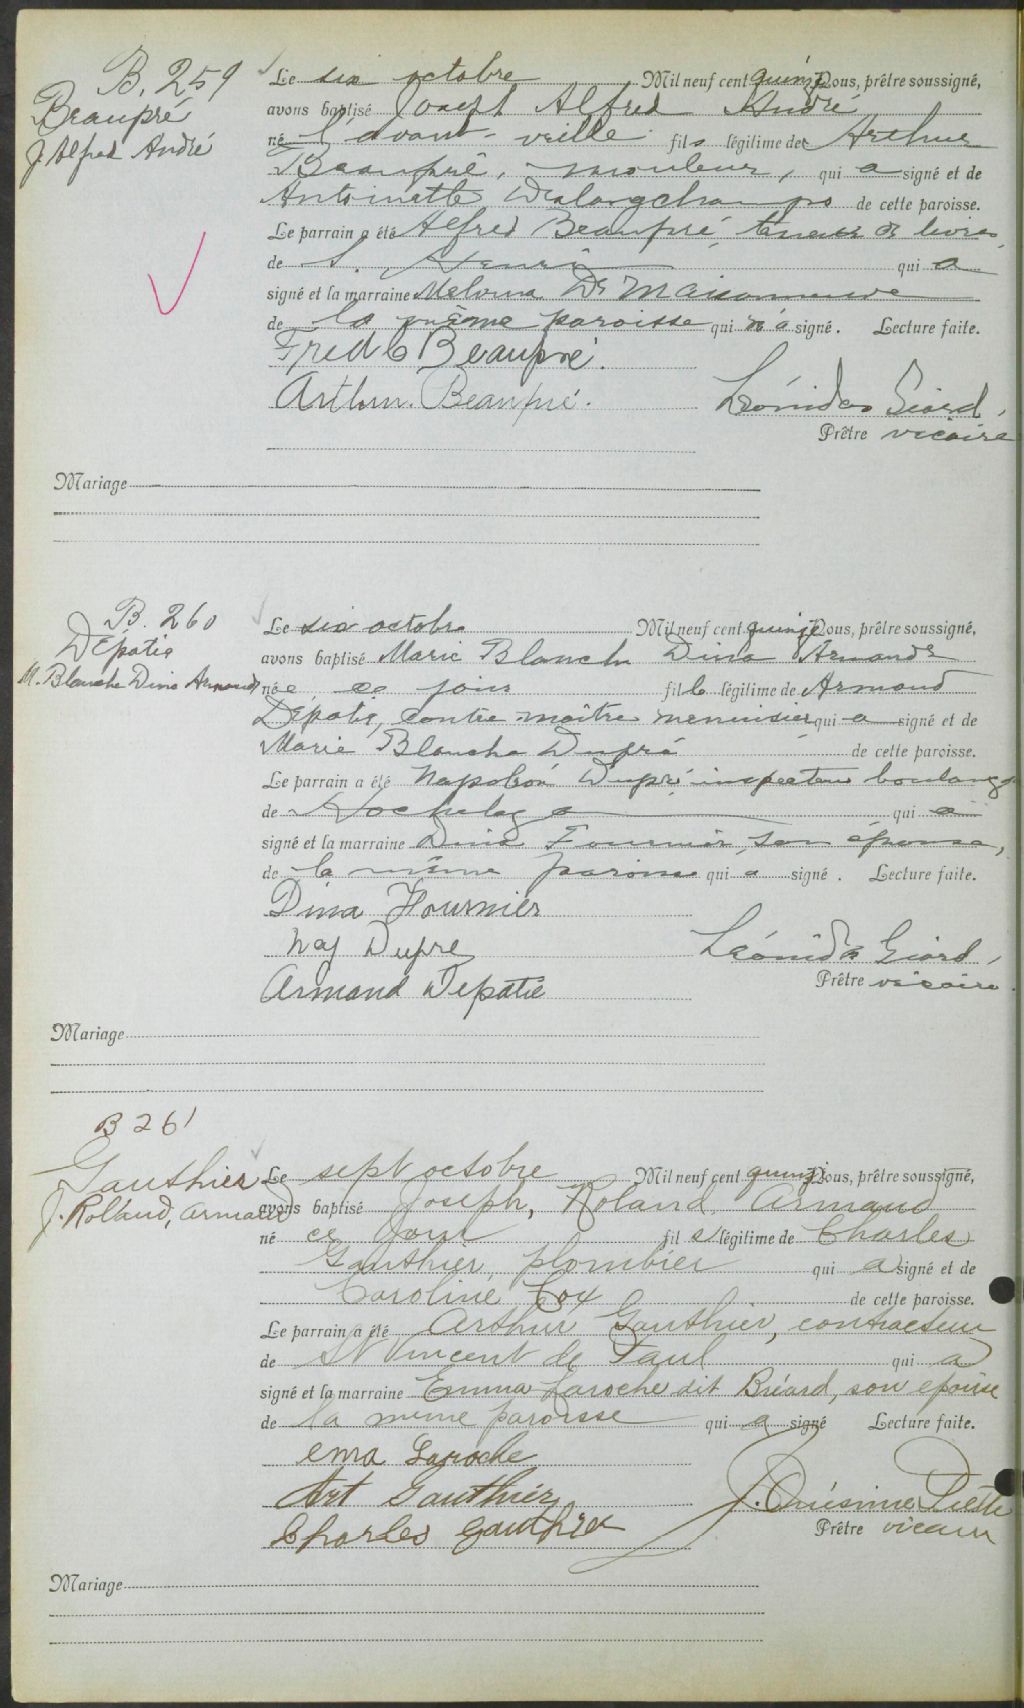 B. 259
Beaupré
J. Alfred André
Le six octobre Mil neuf cent quinze Nous, prêtre soussigné,
avons baptisé Joseph Alfred André
né l'avant-veille fils légitime de Arthur
Beaupré, mouleur, qui a signé et de
Antoinette Deslongchamps de cette paroisse.
Le parrain a été Alfred Beaupré teneur de livres
de S. Henri qui a
signé et la marraine Melvina De Maisonneuve
de la même paroisse qui n'a signé. Lecture faite.
Fred Beaupré.
Arthur. Beaupré.
Léonidas Giard,
Prêtre vicaire
Mariage
B. 260
Dépatie
M. Blanche Dina Armande
Le six octobre Mil neuf cent quinze Nous, prêtre soussigné,
avons baptisé Marie Blanche Dina Armande
née ce jour fille légitime de Armand
Dépatie, contre maître menuisier qui a signé et de
Marie Blanche Dupré de cette paroisse.
Le parrain a été Napoléon Dupré inspecteur boulanger
de Hochelaga qui a
signé et la marraine Dina Fournier, son épouse,
de la même paroisse qui a signé. Lecture faite.
Dina Fournier
Nap Dupre
Armand Depatie
Léonidas Giard,
Prêtre vicaire.
Mariage
B 261
Gauthier
J. Roland, Armand
Le sept octobre Mil neuf cent quinze Nous, prêtre soussigné,
avons baptisé Joseph, Roland, Armand
né ce jour fils légitime de Charles
Gauthier, plombier qui a signé et de
Caroline Cox de cette paroisse.
Le parrain a été Arthur Gauthier, contracteur
de St Vincent de Paul qui a
signé et la marraine Emma Laroche dit Briard, son épouse
de la même paroisse qui a signé Lecture faite.
ema Laroche
Art Gauthier
Charles Gauthier
J. Onésime Piette
Prêtre vicaire
Mariage